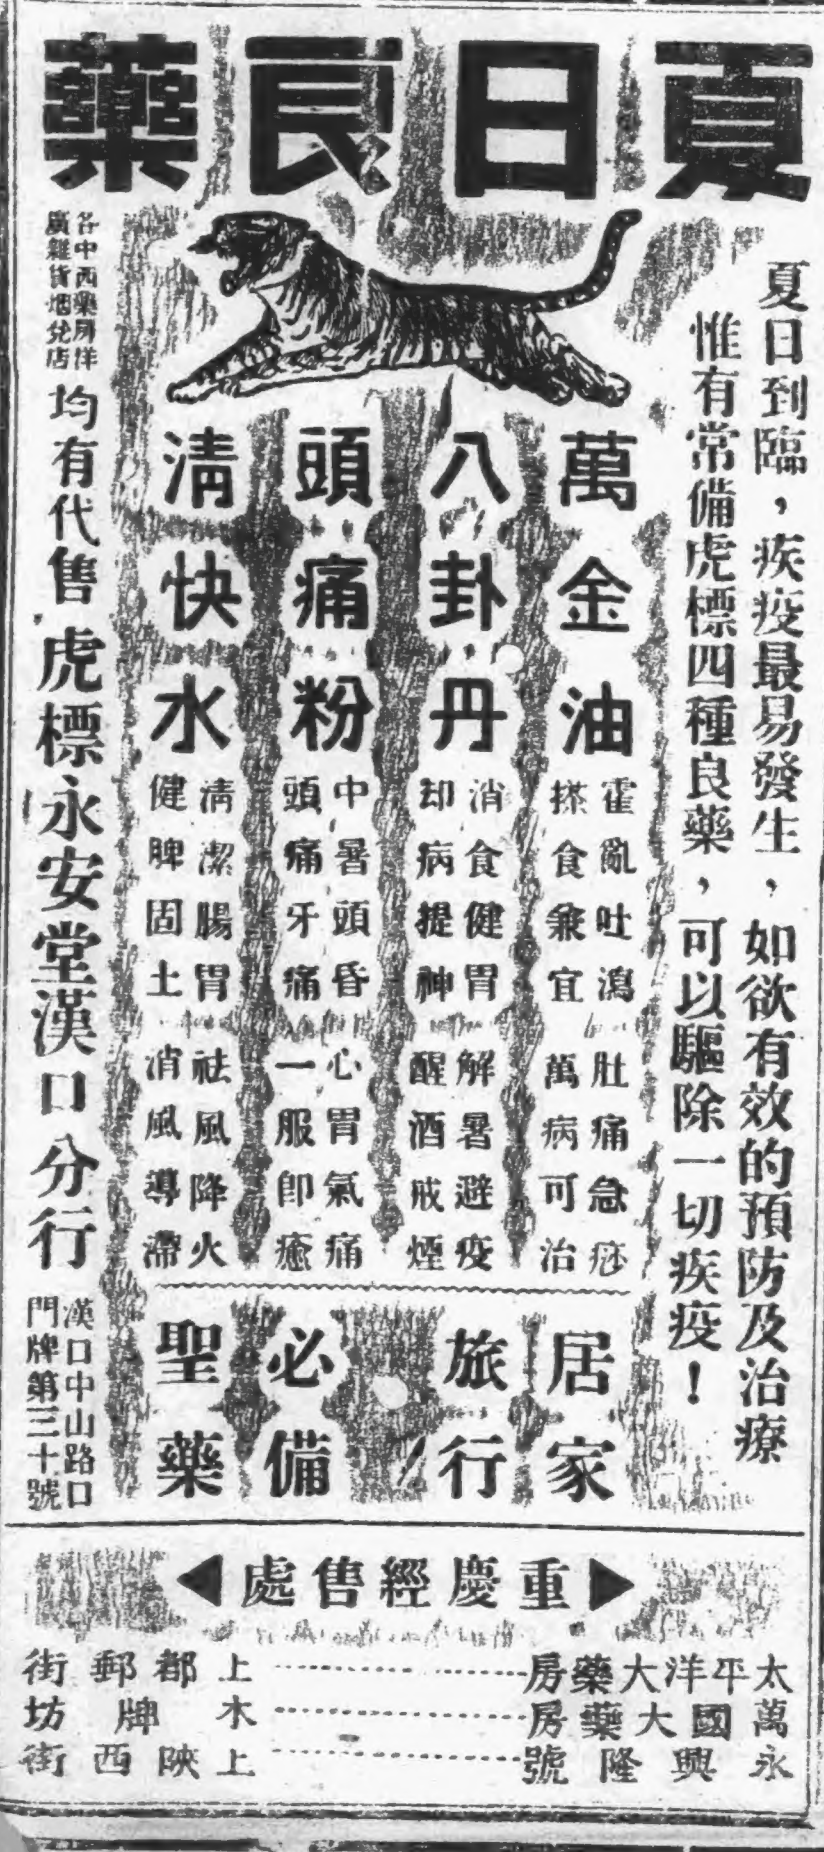 夏日良藥
夏日到臨，疾疫最易發生，如欲有效的預防及治療
惟有常備虎標四種良藥，可以驅除一切疾疫！
萬金油
霍亂吐瀉　肚痛急痧
搽食兼宜　萬病可治
八卦丹
消食健胃　解暑避疫
却病提神　醒酒戒煙
頭痛粉
中暑頭昏　心胃氣痛
頭痛牙痛　一服即癒
清快水
清潔腸胃　祛風降火
健脾固土　消風導滯
居家
旅行
必備
聖藥
各中西藥房洋
廣雜貨烟兌店
均有代售
虎標永安堂漢口分行
漢口中山路口
門牌第三十號
重慶經售處
太平洋大藥房……上都郵街
萬國大藥房……木牌坊
永興隆號……上陝西街